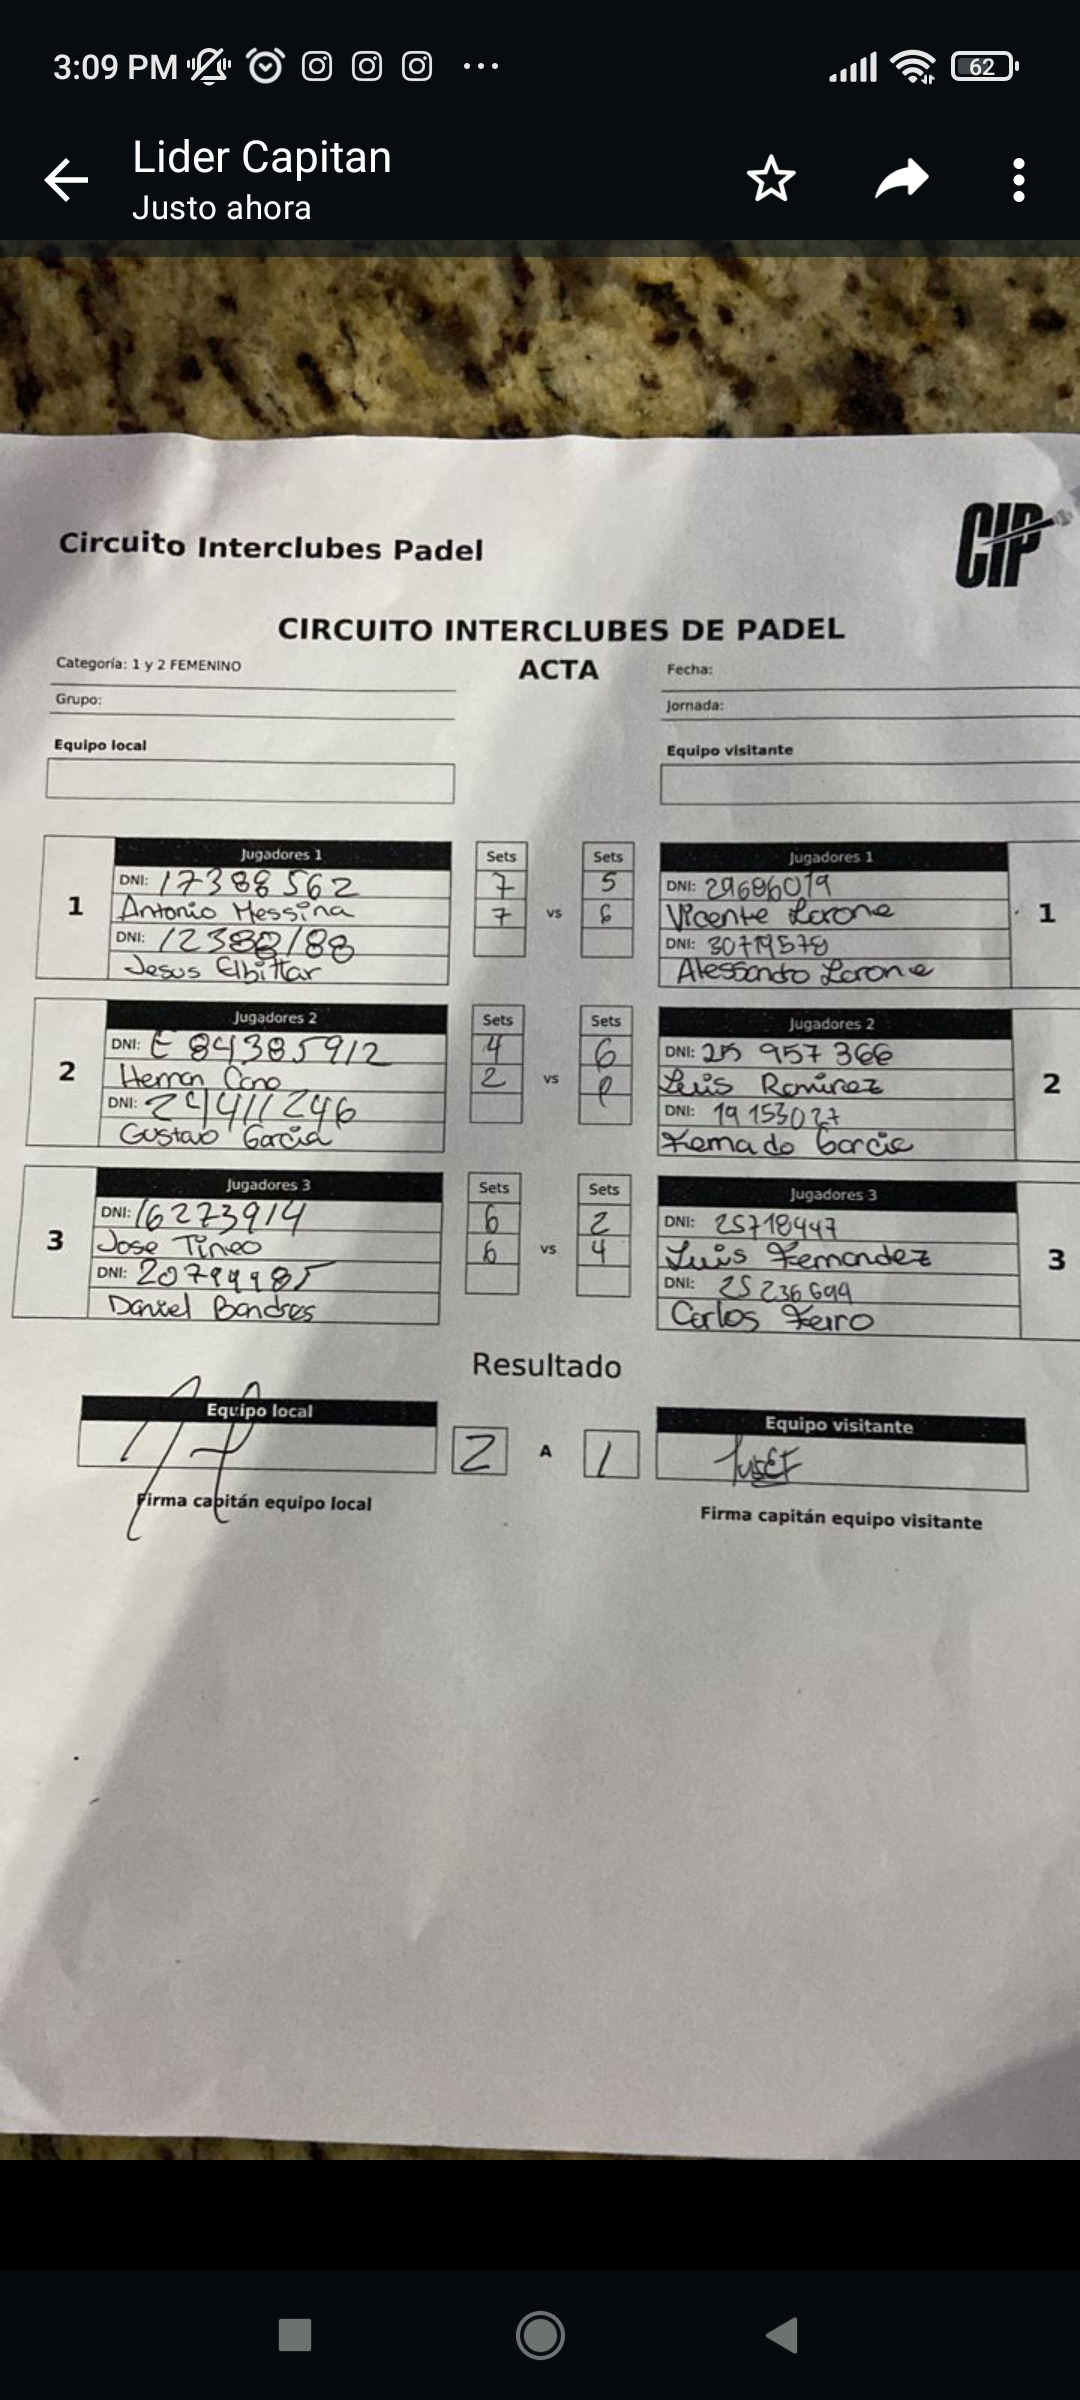 3:09 PM
62
Lider Capitan
Justo ahora
Circuito Interclubes Padel
CIP
CIRCUITO INTERCLUBES DE PADEL
ACTA
Categoría: 1 y 2 FEMENINO
Fecha:
Grupo:
Jornada:
Equipo local
Equipo visitante
1
Jugadores 1
Sets
Sets
Jugadores 1
1
DNI: 17388562
7
5
DNI: 29686019
Antonio Messina
7
vs
6
Vicente Larone
DNI: 12380188
DNI: 30719578
Jesus Elbittar
Alessandro Larone
2
Jugadores 2
Sets
Sets
Jugadores 2
2
DNI: E 84385912
4
6
DNI: 25 957 366
Hernan Cano
2
vs
Luis Ramirez
DNI: 24411246
DNI: 19153027
Gustavo Garcia
Fernando Garcia
3
Jugadores 3
Sets
Sets
Jugadores 3
3
DNI: 16273914
6
2
DNI: 25718447
Jose Tineo
6
vs
4
Luis Fernandez
DNI: 20799985
DNI: 25236699
Daniel Bandres
Carlos Feiro
Resultado
Equipo local
2
A
1
Equipo visitante
Firma capitán equipo local
Firma capitán equipo visitante